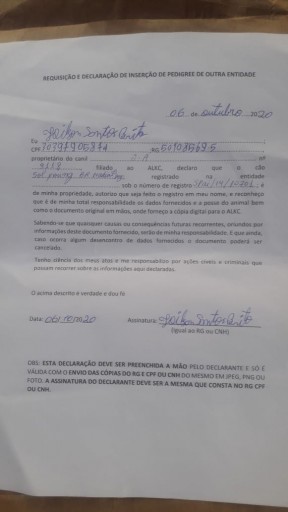 REQUISIÇÃO E DECLARAÇÃO DE INSERÇÃO DE PEDIGREE DE OUTRA ENTIDADE
06 de outubro 2020
Eu
CPF RG
proprietário do canil nº
filiado ao ALKC, declaro que o cão
registrado na entidade
sob o número de registro e
de minha propriedade, autorizo que seja feito o registro em meu nome, e reconheço
que é de minha total responsabilidade os dados fornecidos e a posse do animal bem
como o documento original em mãos, onde forneço a cópia digital para o ALKC.
Sabendo-se que quaisquer causas ou consequências futuras recorrentes, oriundos por
informações deste documento fornecido, serão de minha responsabilidade. E que ainda,
caso ocorra algum desencontro de dados fornecidos o documento poderá ser
cancelado.
Tenho ciência dos meus atos e me responsabilizo por ações cíveis e criminais que
possam recorrer sobre as informações aqui declaradas.
O acima descrito é verdade e dou fé
Data: 06/10/2020 Assinatura:
(Igual ao RG ou CNH)
OBS: ESTA DECLARAÇÃO DEVE SER PREENCHIDA A MÃO PELO DECLARANTE E SÓ É
VÁLIDA COM O ENVIO DAS CÓPIAS DO RG E CPF OU CNH DO MESMO EM JPEG, PNG OU
FOTO. A ASSINATURA DO DECLARANTE DEVE SER A MESMA QUE CONSTA NO RG CPF
OU CNH.